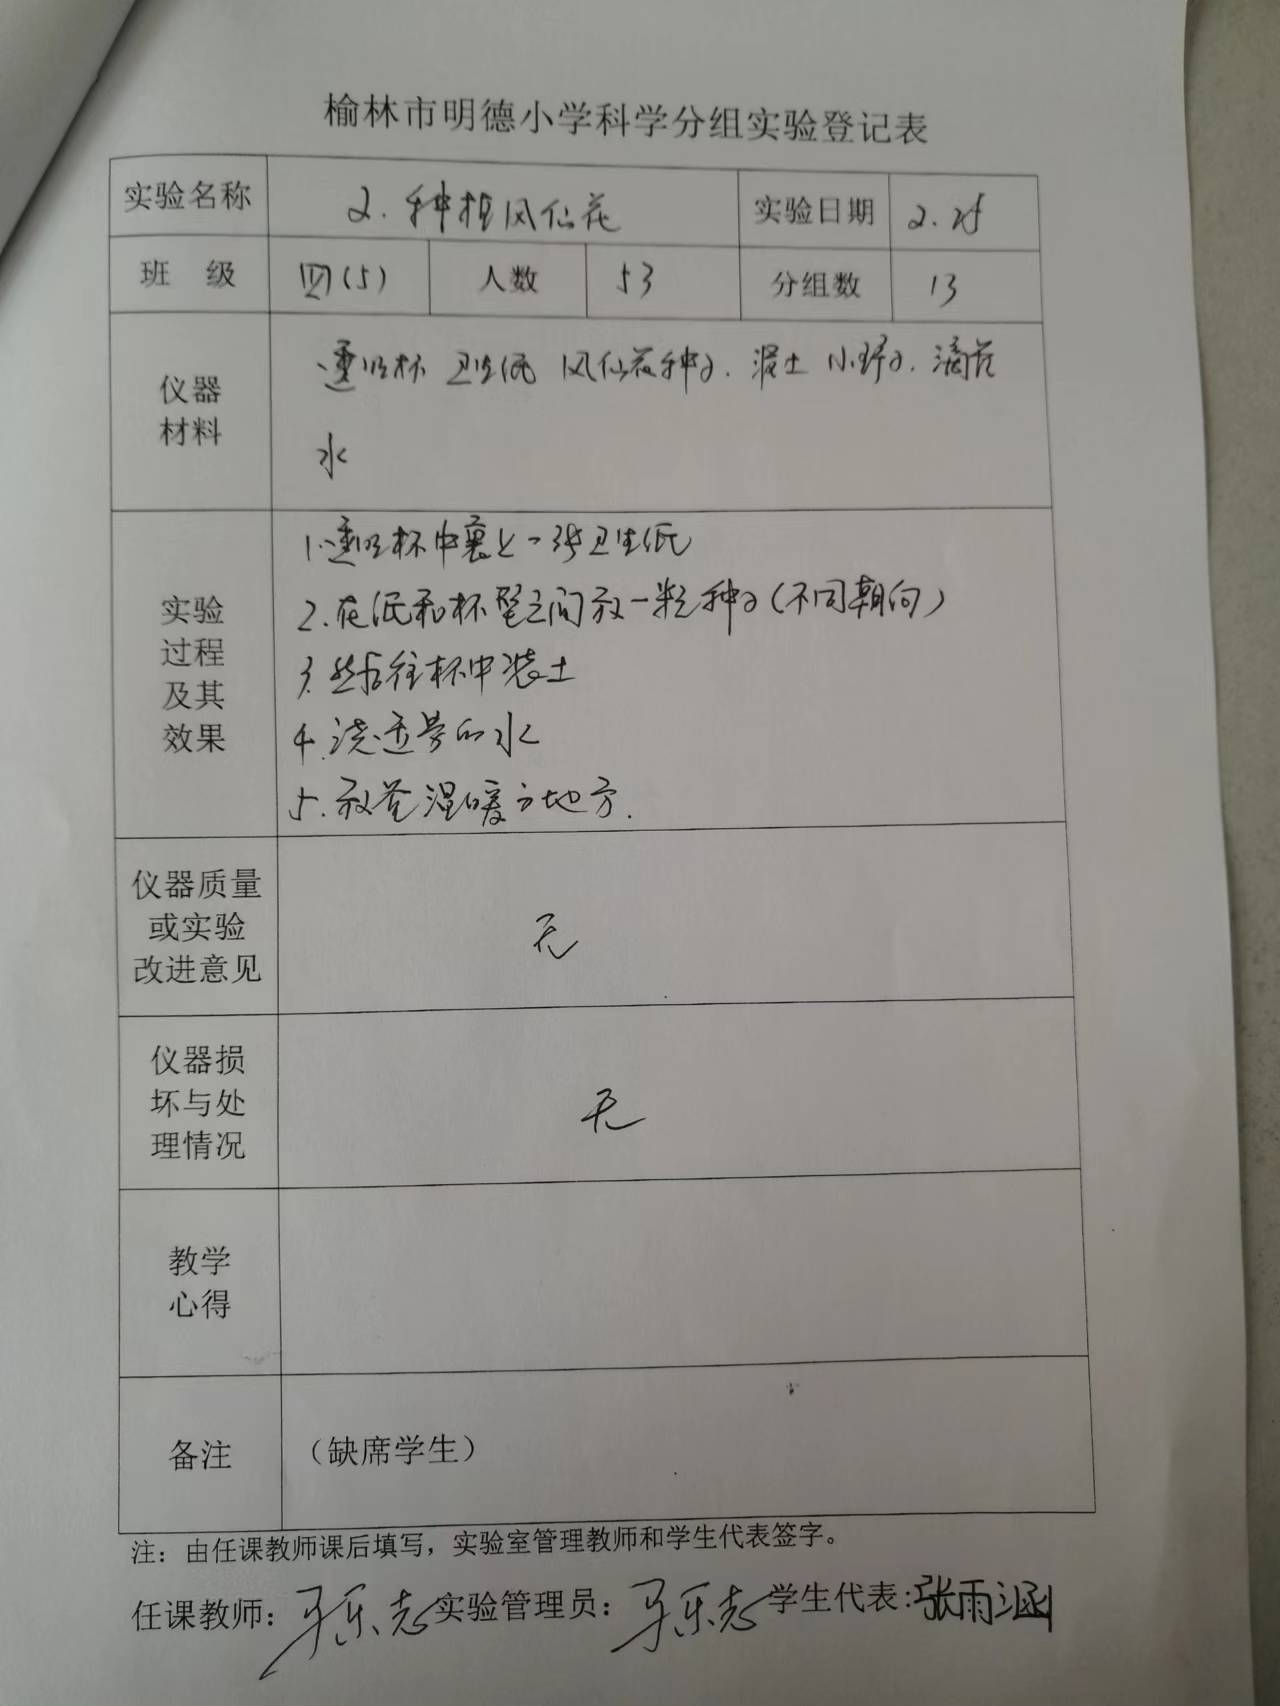 榆林市明德小学科学分组实验登记表
实验名称 2. 种植凤仙花 实验日期 2.25
班 级 四(5) 人数 53 分组数 13
仪器材料 透明杯 卫生纸 凤仙花种子. 泥土 小铲子. 滴管
水
实验过程及其效果
1.透明杯中裹上一张卫生纸
2.在纸和杯壁之间放一粒种子(不同朝向)
3.然后往杯中装土
4.浇适量的水
5.放在温暖的地方.
仪器质量或实验改进意见 无
仪器损坏与处理情况 无
教学心得
备注 (缺席学生)
注：由任课教师课后填写，实验室管理教师和学生代表签字。
任课教师: 马乐志 实验管理员: 马乐志 学生代表:张雨涵